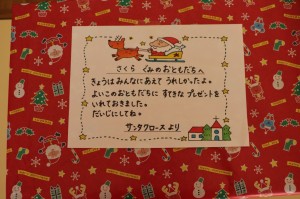 さくら ぐみの おともだちへ
きょうは みんなに あえて うれしかったよ。
よいこの おともだちに すてきな プレゼントを
いれておきました。
だいじにしてね。
サンタクロース より